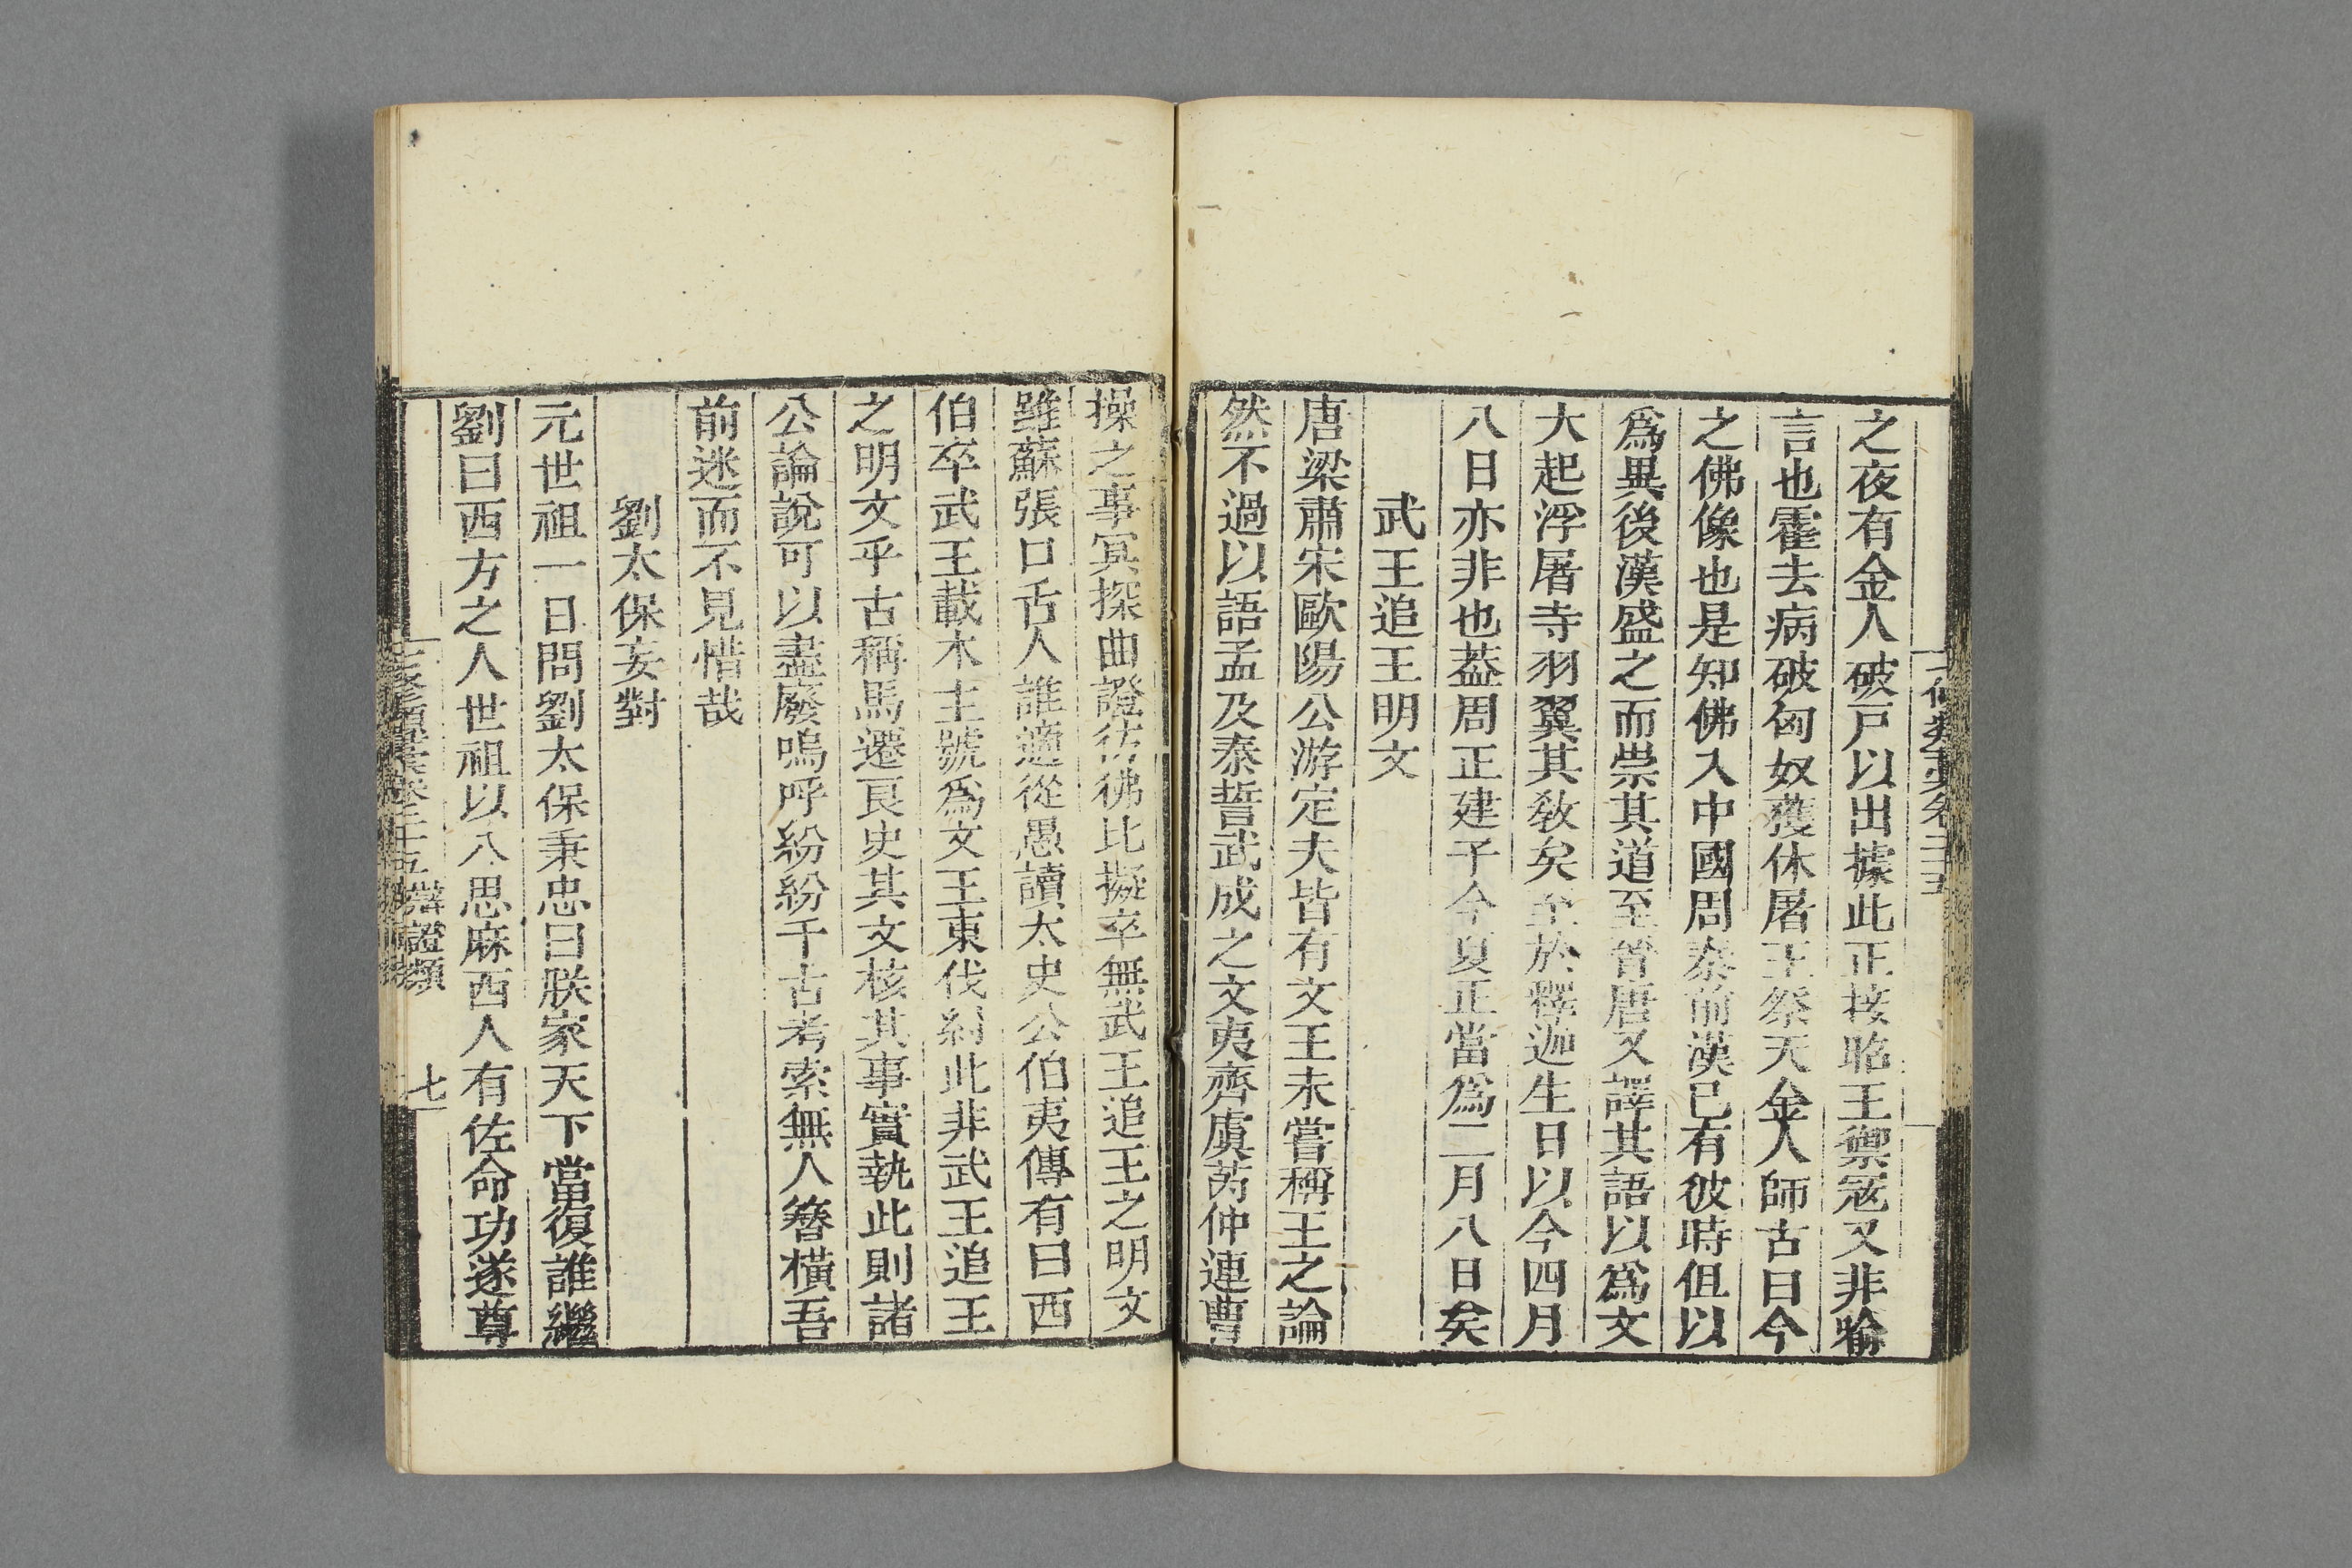 之夜有金人破戸以出據此正接昭王禦寇又非喻
言也霍去病破匈奴獲休屠王祭天金人師古曰今
之佛像也是知佛入中國周秦前漢已有彼時但以
爲異後漢盛之而崇其道至晉唐又譯其語以爲文
大起浮屠寺羽翼其敎矣至於釋迦生日以今四月
八日亦非也葢周正建子今夏正當爲二月八日矣
武王追王明文
唐梁肅宋歐陽公游定夫皆有文王未嘗稱王之論
然不過以語孟及泰誓武成之文夷齊虞芮仲連曹
操之事冥探曲證彷彿比擬卒無武王追王之明文
雖蘇張口舌人誰適從愚讀太史公伯夷傳有曰西
伯卒武王載木主號爲文王東伐紂此非武王追王
之明文乎古稱馬遷良史其文核其事實執此則諸
公論說可以盡廢嗚呼紛紛千古考索無人簪橫吾
前迷而不見惜哉
劉太保妄對
元世祖一日問劉太保秉忠曰朕家天下當復誰繼
劉曰西方之人世祖以八思麻西人有佐命功遂尊
卷二十五 辯證類 七